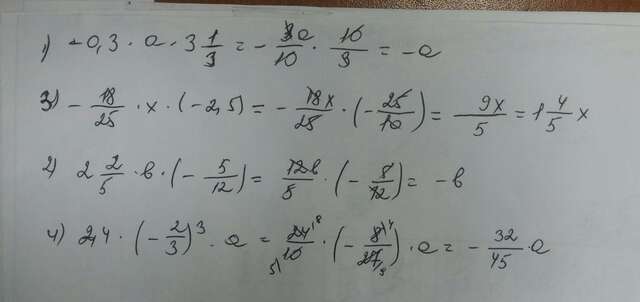 1) -0,3 · a · 3 1/3 = - 3a/10 · 10/3 = -a
3) - 18/25 · x · (-2,5) = - 18x/25 · (- 25/10) = 9x/5 = 1 4/5 x
2) 2 2/5 · в · (- 5/12) = 12в/5 · (- 5/12) = -в
4) 2,4 · (- 2/3)³ · a = 24/10 · (- 8/27) · a = - 32/45 · a